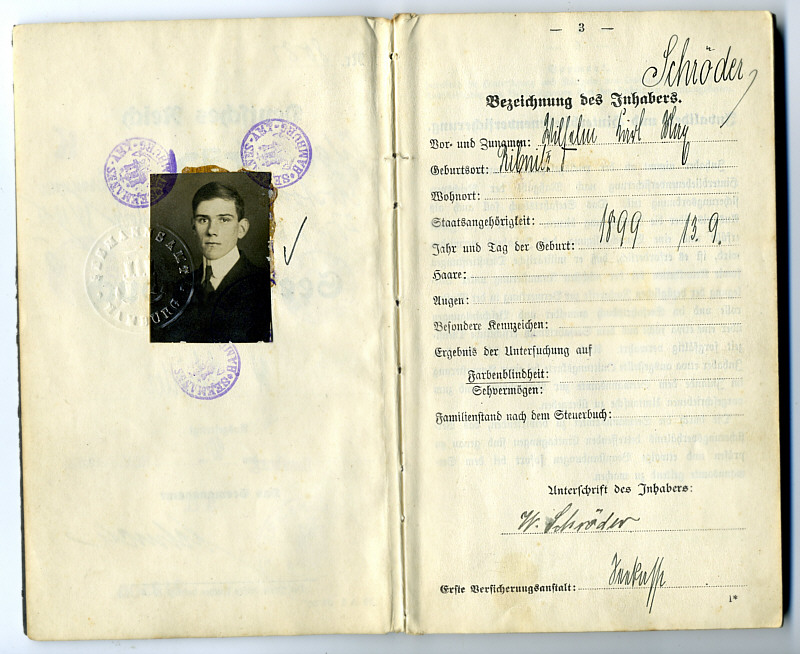 SEEMANNSAMT HAMBURG
— 3 —
Schröder
Bezeichnung des Inhabers.
Vor- und Zunamen: Wilhelm Carl Max
Geburtsort: Ribnitz
Wohnort:
Staatsangehörigkeit:
Jahr und Tag der Geburt: 1899 13.9.
Haare:
Augen:
Besondere Kennzeichen:
Ergebnis der Untersuchung auf
Farbenblindheit:
Sehvermögen:
Familienstand nach dem Steuerbuch:
Unterschrift des Inhabers:
W. Schröder
Erste Versicherungsanstalt: Seekasse
1*